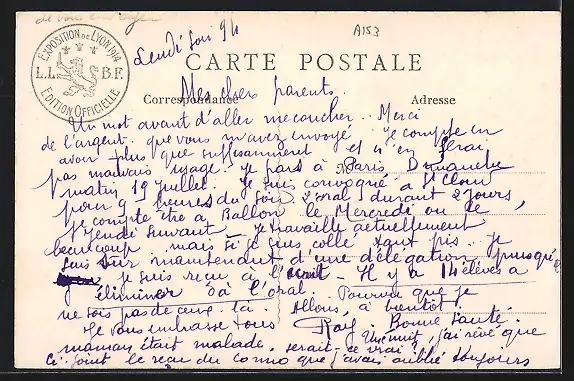 Je vous envoyer
A153
Lundi soir 9h
EXPOSITION DE LYON 1914
L.L. B.F.
EDITION OFFICIELLE
CARTE POSTALE
Correspondance
Adresse
Mes chers parents.
Un mot avant d'aller me coucher. Merci
de l'argent que vous m'avez envoyé. Je compte en
avoir plus que suffisamment et n'en ferai
pas mauvais usage. Je pars à Paris, Dimanche
matin 19 juillet. Je suis convoqué à St Cloud
pour 9 heures du soir. L'oral durant 2 jours,
je compte être à Ballon le Mercredi ou le
Jeudi suivant. Je travaille actuellement
beaucoup mais si je suis collé tant pis. Je
suis sûr maintenant d'une délégation puisque
je suis reçu à l'écrit. Il y a 14 élèves à
éliminer à l'oral. Pourvu que je
ne sois pas de ceux-là. Allons, à bientôt.
Je vous embrasse tous Bonne santé.
Ray
Une nuit, j'ai rêvé que
maman était malade. serait-ce vrai?
Ci-joint le reçu du que j'avais oublié toujours